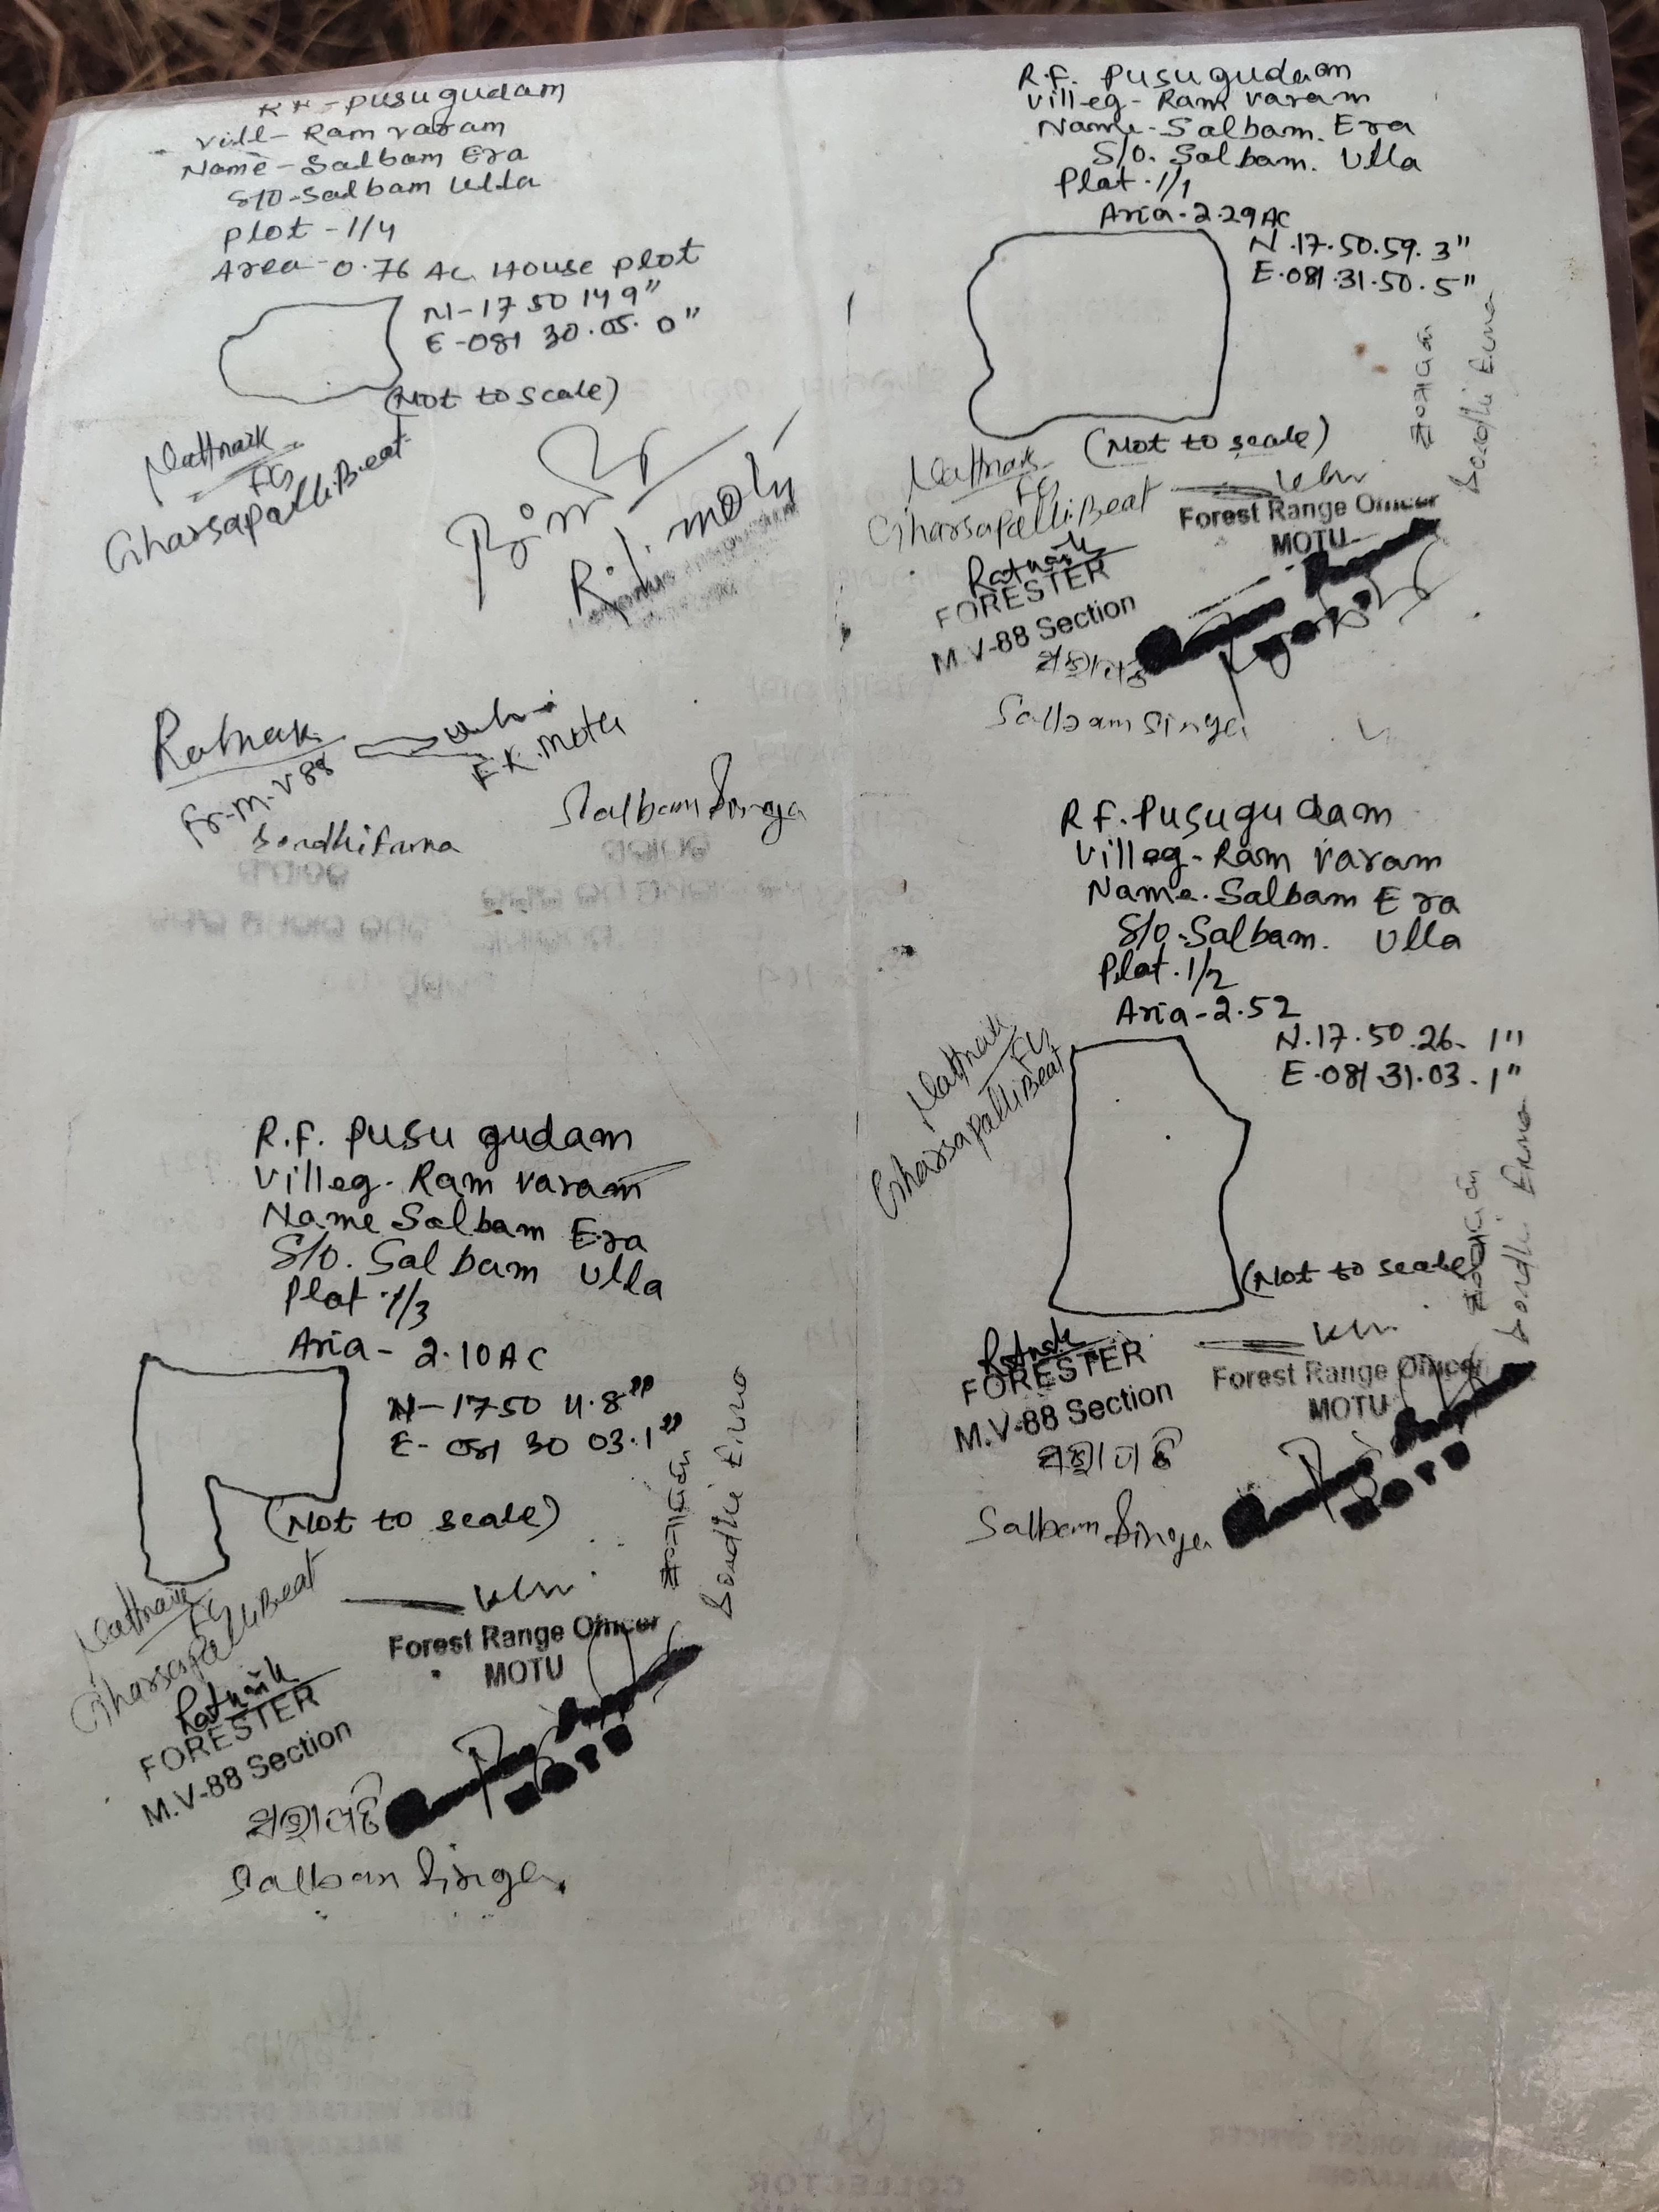 RF - Pusugudam
Vill - Ram varam
Name - Salbam Era
S/O - Salbam Ulla
Plot - 1/4
Area - 0.76 AC House plot
N - 17 50 14 9"
E - 081 30.05.0"
(Not to scale)
GharsapalliBeat
R.I. Motu
Ratnaik
Fr. M.V 88
F.R. Motu
Sondhi Erma
Salbam Singa
R.F. Pusugudam
Villeg - Ram varam
Name - Salbam. Era
S/O. Salbam. Ulla
Plat. 1/1
Aria - 2.29 AC
N.17.50.59.3"
E.081.31.50.5"
(Not to scale)
GharsapalliBeat
Forest Range Officer
MOTU
Ratnaik
FORESTER
M.V-88 Section
Salbam Singa
Sondhi Erma
R.F. Pusugudam
Villeg - Ram varam
Name. Salbam Era
S/O. Salbam. Ulla
Plat. 1/2
Aria - 2.52
N.17.50.26.1"
E.081.31.03.1"
(Not to scale)
GharsapalliBeat
Ratnaik
FORESTER
M.V-88 Section
Forest Range Officer
MOTU
Salbam Singa
Sondhi Erma
R.F. Pusu gudam
Villeg - Ram varam
Name Salbam Era
S/O. Salbam Ulla
Plat. 1/3
Aria - 2.10 AC
N - 17 50 4.8"
E - 081 30 03.1"
(Not to scale)
GharsapalliBeat
Forest Range Officer
MOTU
Ratnaik
FORESTER
M.V-88 Section
ସଭାପତି
Salbam Singa
Sondhi Erma